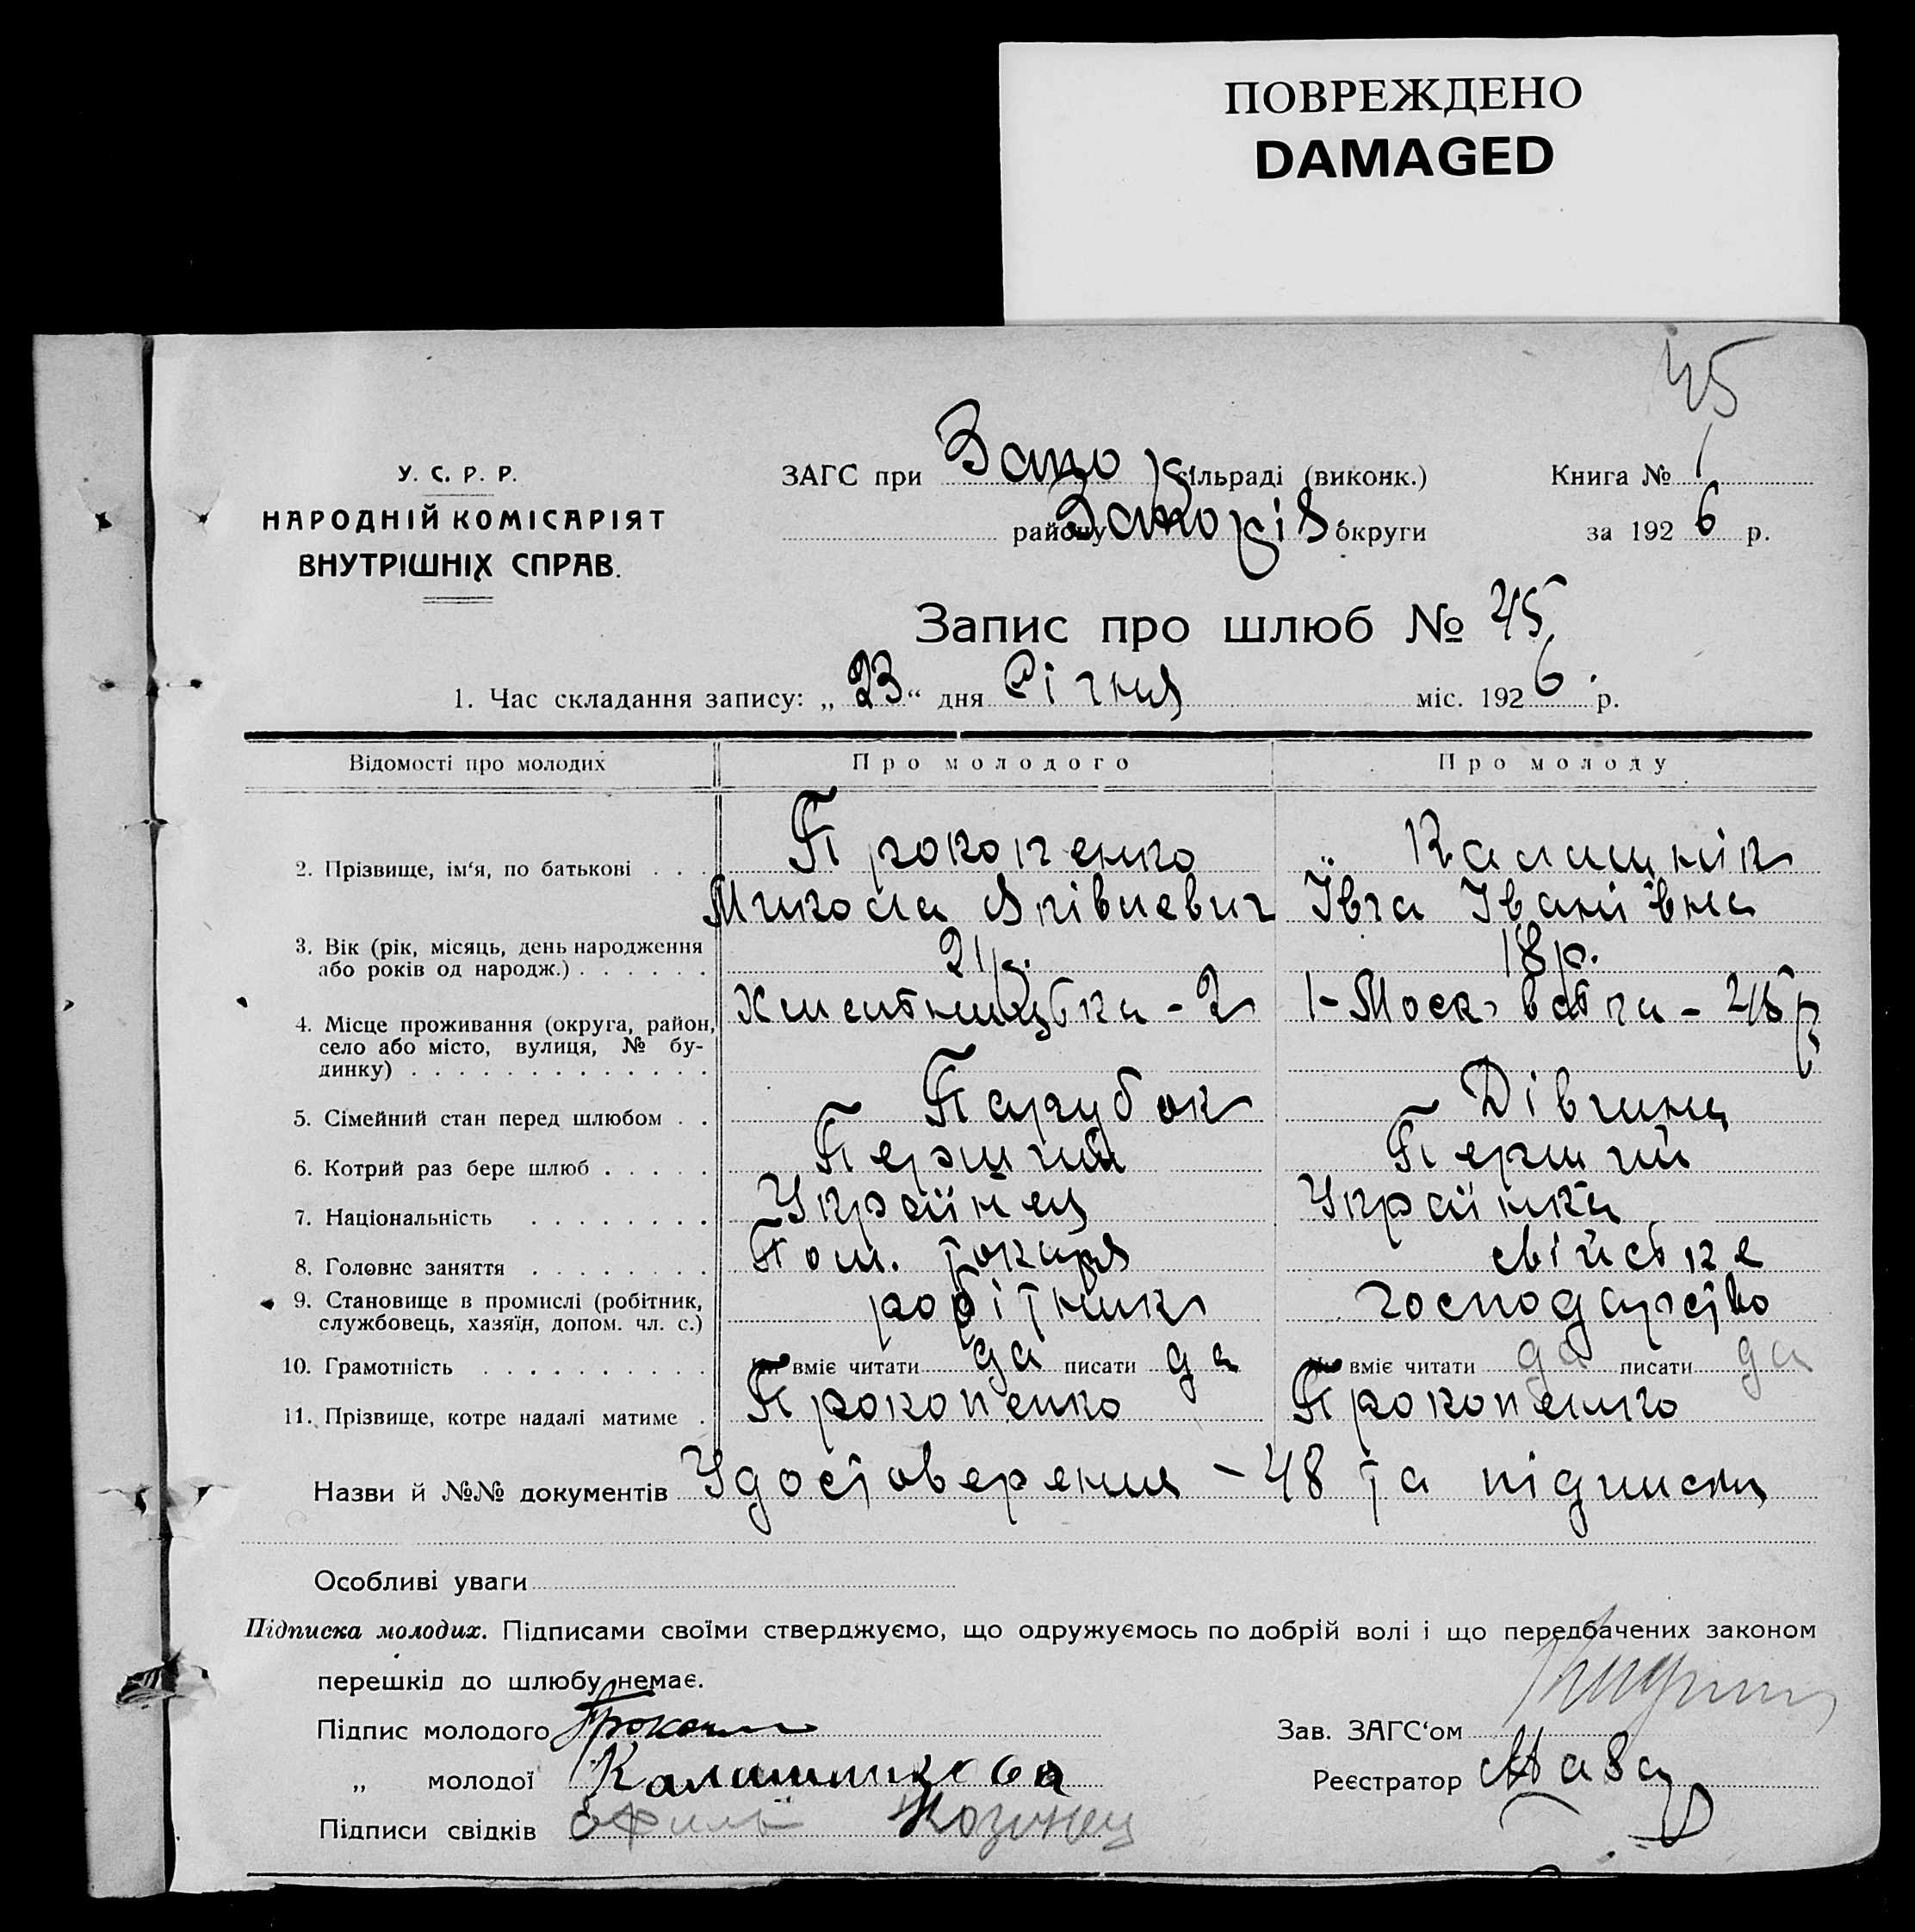 ПОВРЕЖДЕНО
DAMAGED
45
У. С. Р. Р.
НАРОДНІЙ КОМІСАРІЯТ
ВНУТРІШНІХ СПРАВ.
ЗАГС при Запор сільраді (виконк.)
району Запоріз округи
Книга № 1
за 1926 р.
Запис про шлюб № 45
1. Час складання запису: „23“ дня Січня міс. 1926 р.
Відомості про молодих Про молодого Про молоду
2. Прізвище, ім‘я, по батькові Прокопенко Калашнік
Микола Івга
3. Вік (рік, місяць, день народження або років од народж.) 21р. 18р.
4. Місце проживання (округа, район, село або місто, вулиця, № будинку) - 2 1-Моск
5. Сімейний стан перед шлюбом Парубок Дівчина
6. Котрий раз бере шлюб Перший Перший
7. Національність Українец Українка
8. Головне заняття Пом. токаря свійське
9. Становище в промислі (робітник, службовець, хазяїн, допом. чл. с.) робітник господарство
10. Грамотність Чи вміє читати да писати да Чи вміє читати да писати да
11. Прізвище, котре надалі матиме Прокопенко Прокопенко
Назви й №№ документів Удостоверения - 48 та підписки
Особливі уваги
Підписка молодих. Підписами своїми стверджуємо, що одружуємось по добрій волі і що передбачених законом
перешкід до шлюбу немає.
Підпис молодого
Зав. ЗАГС‘ом
„ молодої Калашникова
Реєстратор
Підписи свідків